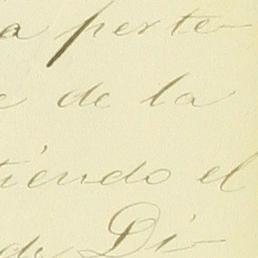 a perte-
e de la
tiendo el
de Di-